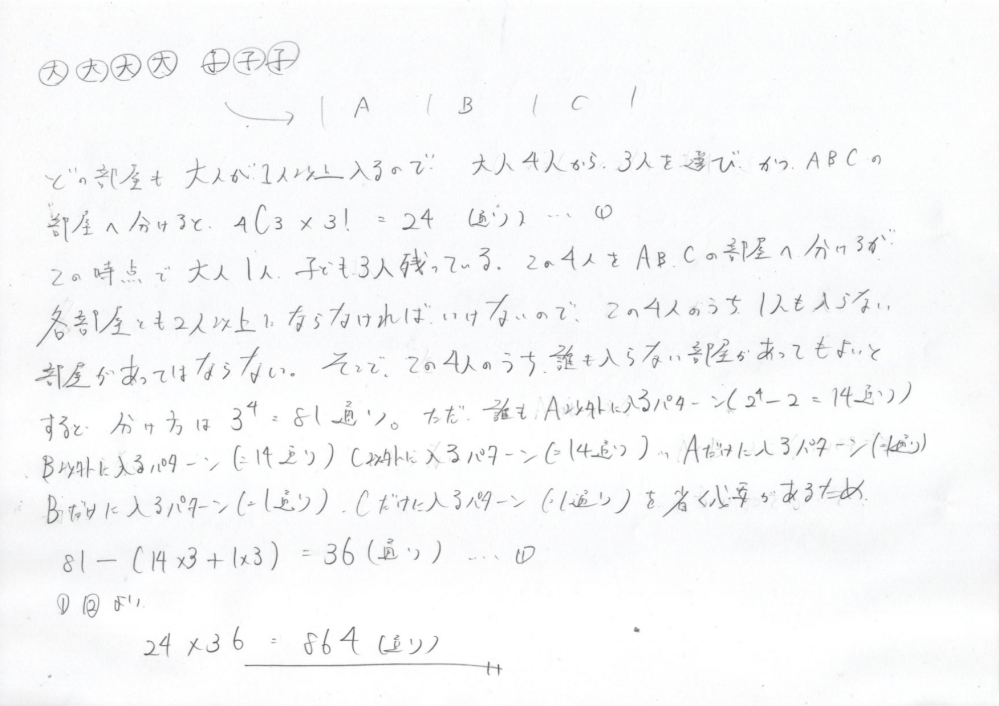 大 大 大 大 子 子 子
| A | B | C |
どの部屋も 大人が1人以上入るので 大人4人から、3人を選び、かつ、ABCの
部屋へ分けると、4C3 × 3! = 24 (通り) … ①
この時点で大人1人、子ども3人残っている。この4人をA B, Cの部屋へ分けるが
各部屋とも2人以上にならなければいけないので、この4人のうち1人も入らない
部屋があってはならない。そこで、この4人のうち、誰も入らない部屋があってもよいと
すると 分け方は 3^4 = 81通り。ただ、誰もA以外に入るパターン(2^4-2=14通り)
B以外に入るパターン(=14通り) C以外に入るパターン(=14通り)、Aだけに入るパターン(=1通り)
Bだけに入るパターン(=1通り)、Cだけに入るパターン(=1通り)を省く必要があるため
81-(14×3+1×3) = 36(通り) … ①
① ② より
24 × 36 = 864 (通り)